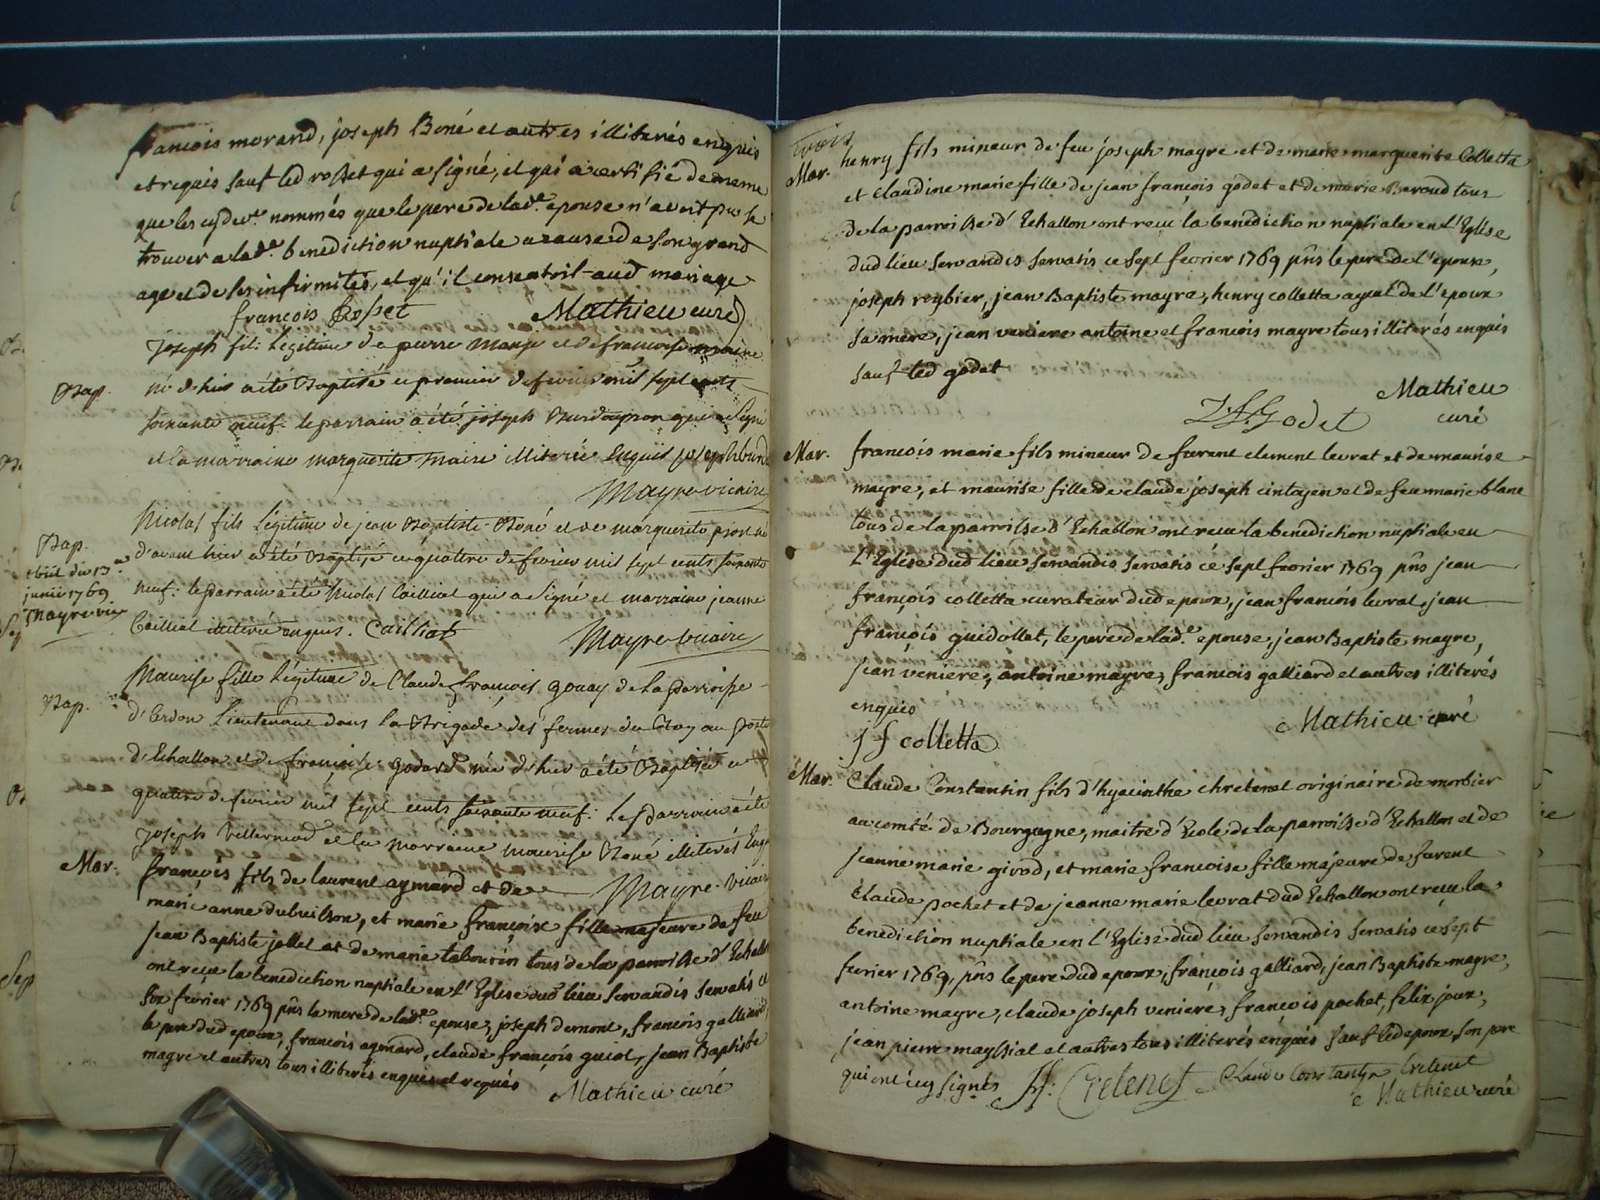 francois morand, joseph Boné et autres illiterés enquis
et requis sauf led rosset qui a signé, et qui a certifié de meme
que les cy dev.t nommés que le pere de lad.e epouse n'avoit pu se
trouver a lad.e benediction nuptiale a cause de son grand
age et de ses infirmités, et qu'il consentoit aud mariage
francois Rosset Mathieu curé
Bap.
joseph fils legitime de pierre et de francoise maire
né d'hier a été Baptisé ce premier de fevrier mil sept cents
soixante neuf. le parrain a été joseph qui a signé
et la marraine marguerite maire illiterée enquis joseph
Mayre vicaire
Bap.
du 13
1769
Mayre vic
Nicolas fils legitime de jean Baptiste Boné et de marguerite né
d'avant hier a été Baptisé ce quattre de fevrier mil sept cents soixante
neuf. le parrain a été Nicolas Cailliat qui a signé et marraine jeanne
Cailliat illiterée enquis. Cailliat Mayre vicaire
Bap.
Maurise fille legitime de Claude françois gouay de la parroisse
d'Ardon Lieutenant dans la Brigade des fermes du Roy au poste
d'Echallon et de françoise godard née d'hier a été Baptisée ce
quattre de fevrier mil sept cents soixante neuf. Le parrain a été
joseph villermod et la marraine maurise Boné illiterés enq
Mayre vicair
Mar.
françois fils de laurent aymard et de
marie anne dubuisson, et marie françoise fille majeure de feu
jean Baptiste jollet et de marie tabourin tous de la parroisse d'Echall
ont reçue la benediction nuptiale en l'Eglise dud lieu servandis servatis ce
six fevrier 1769 pns la mere de lad.e epouse, joseph dumont, françois galliard,
le pere dud epoux, francois aymard, claude françois guiot, jean Baptiste
magre et autres tous illiterés enquis et requis Mathieu curé
Mar.
henry fils mineur de feu joseph magre et de marie marguerite Colletta
et Claudine marie fille de jean françois godet et de marie Baroud tous
de la parroisse d'Echallon ont recue la benediction nuptiale en l'Eglise
dud lieu servandis servatis ce sept fevrier 1769 pns le pere de l'epouse,
joseph reybier, jean Baptiste magre, henry colletta ayeul de l'epoux
sa mere, jean veniere antoine et francois magre tous illiterés enquis
sauf led godet
Mathieu
J f Godet curé
Mar.
francois marie fils mineur de furent clement levrat et de maurise
magre, et maurise fille de claude joseph cintayen et de feu marie blanc
tous de la parroisse d'Echallon ont recue la benediction nuptiale en
L'Eglise dud lieu servandis servatis ce sept fevrier 1769 pns jean
françois colletta curateur dud epoux, jean francois levrat, jean
françois guidollet, le pere de lad.e epouse, jean Baptiste magre,
jean veniere, antoine magre, francois galliard et autres illiterés
enquis
j f colletta Mathieu curé
Mar.
Claude Constantin fils d'hyacinthe chretenet originaire de morbier
au comté de Bourgogne, maitre d'Ecole de la parroisse d'Echallon et de
jeanne marie girod, et marie francoise fille majeure de furent
claude pochet et de jeanne marie levrat dud Echallon ont reçue la
benediction nuptiale en l'Eglise dud lieu servandis servatis ce sept
fevrier 1769, pns le pere dud epoux, françois galliard, jean Baptiste magre,
antoine magre, claude joseph veniere, francois pochet, felix joux,
jean pierre maissiat et autres tous illiterés enquis sauf led epoux, son pere
qui ont icy signés H: Cretenet Claude Constantin Cretenet
Mathieu curé